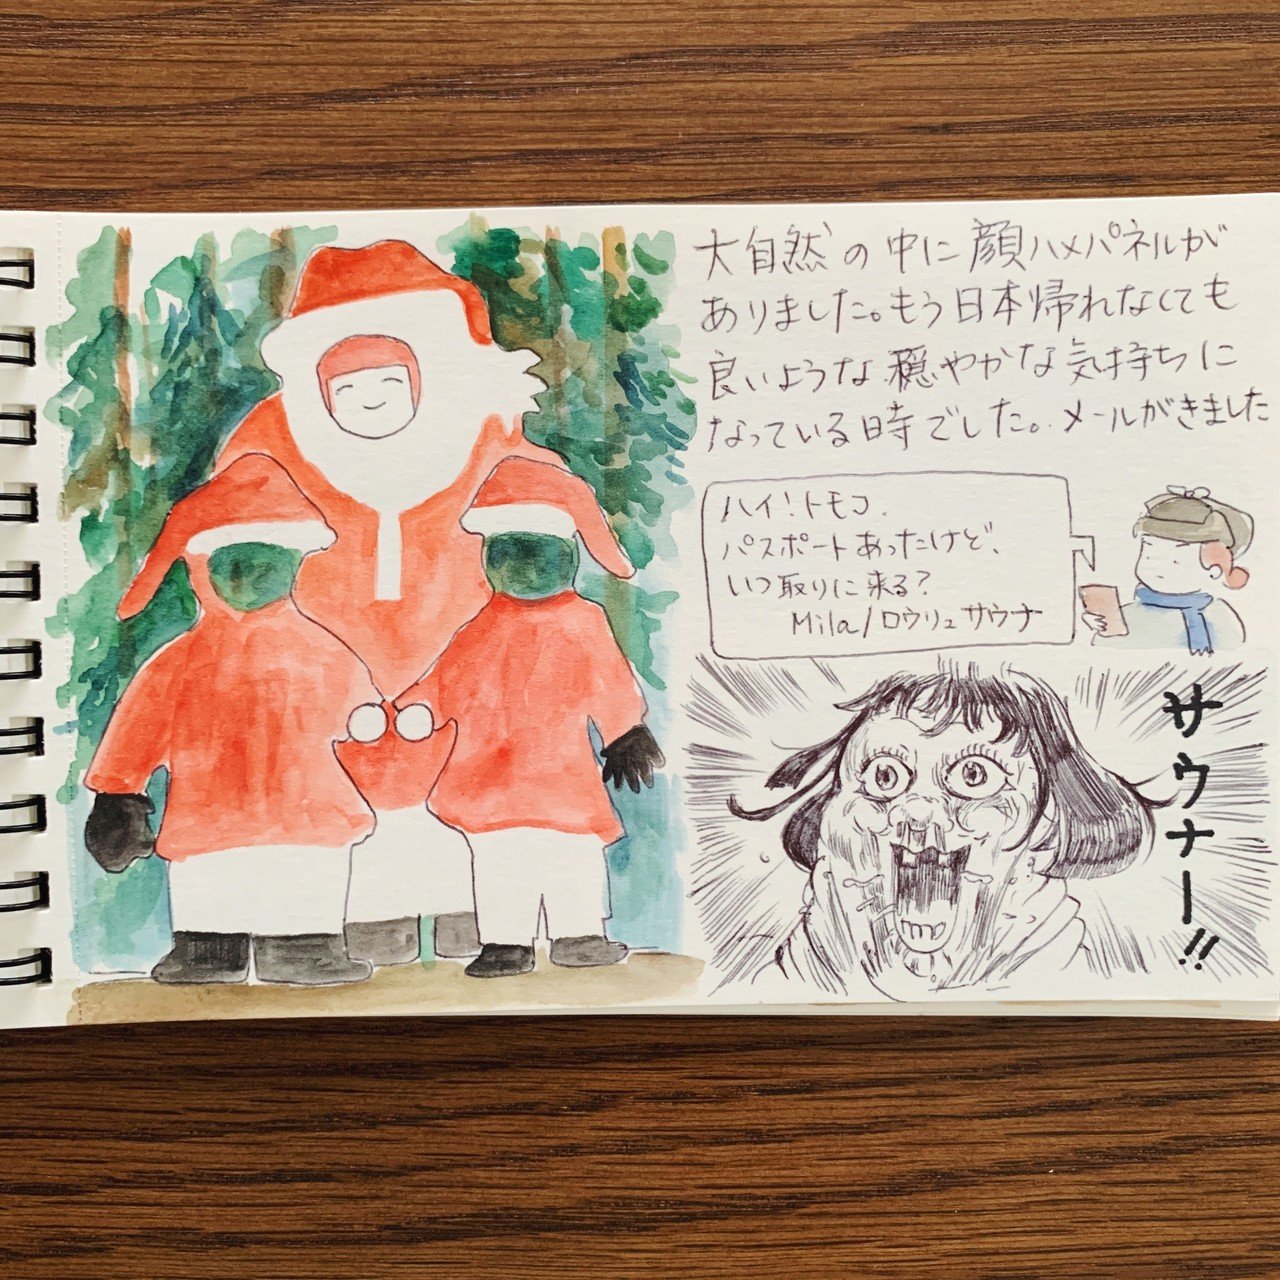 大自然の中に顔ハメパネルが
ありました。もう日本帰れなくても
良いような穏やかな気持ちに
なっている時でした。メールがきました
ハイ!トモコ、
パスポートあったけど、
いつ取りに来る?
Mila/ロウリュサウナ
サウナー!!